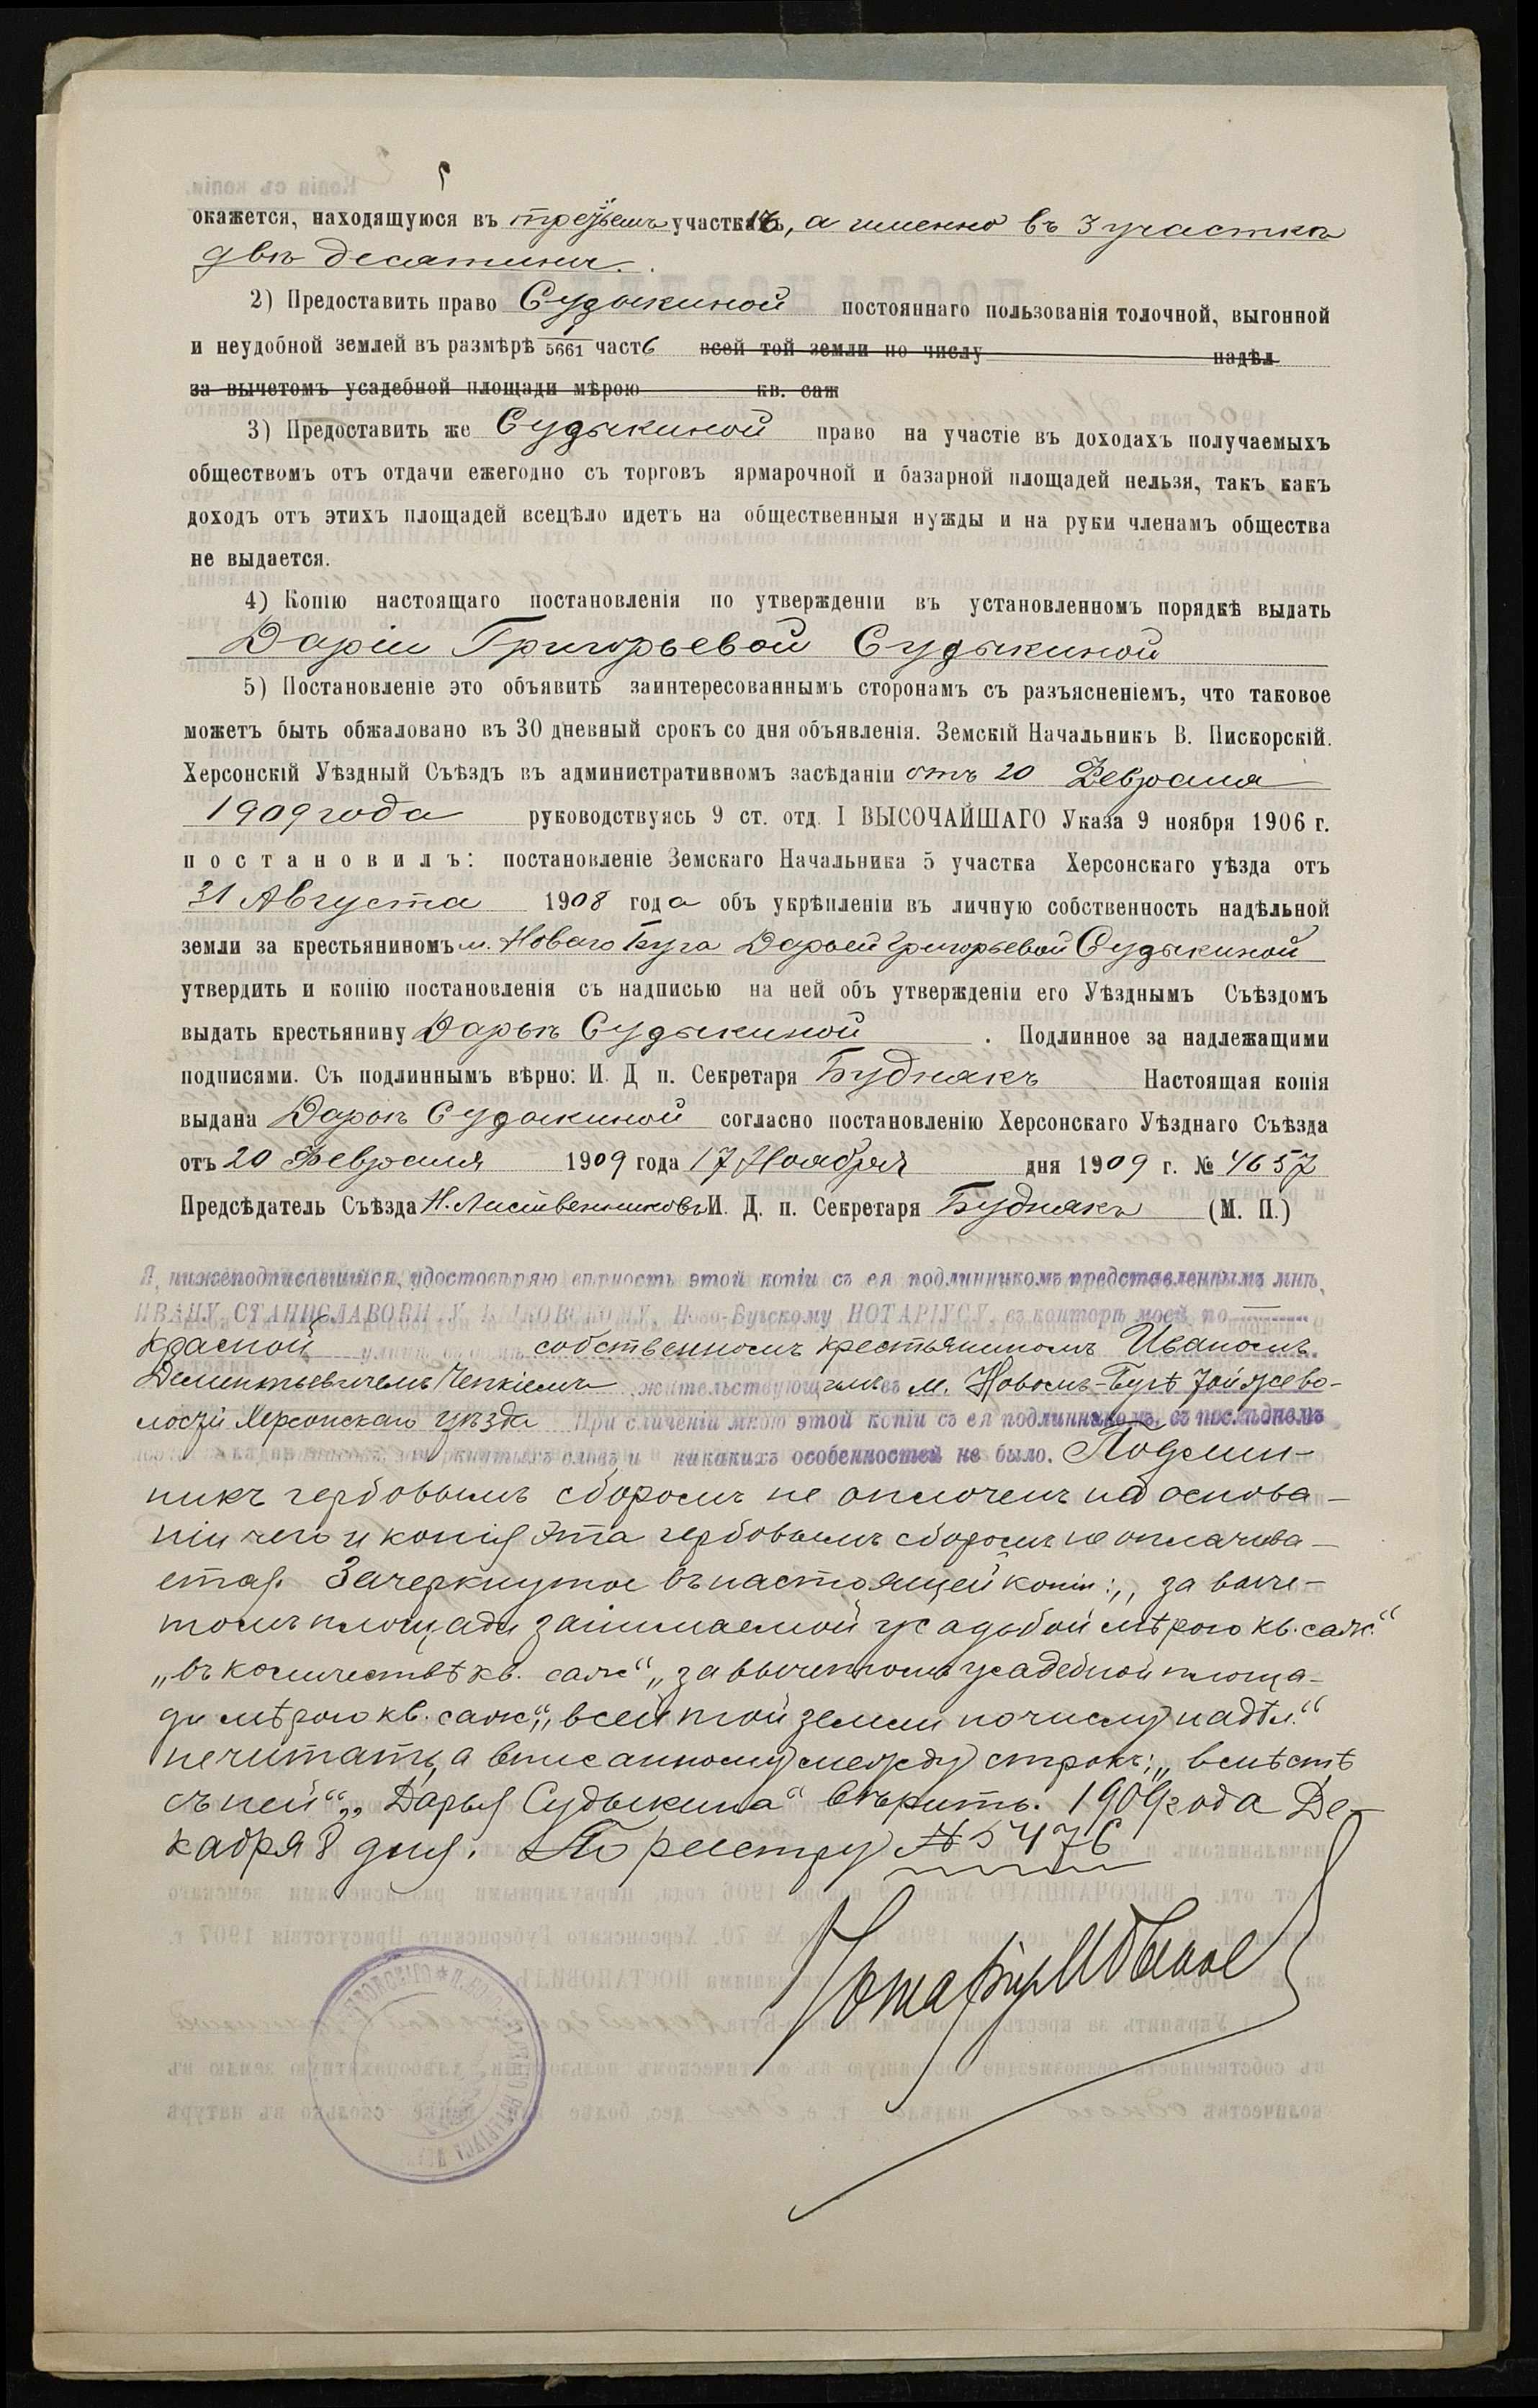 окажется, находящуюся въ третьемъ участкѣ, а именно въ 3 участкѣ
двѣ десятины.
2) Предоставить право Судыкиной постояннаго пользованія толочной, выгонной
и неудобной землей въ размѣрѣ 1/5661 часть всей той земли по числу надѣл
за вычетомъ усадебной площади мѣрою кв. саж
3) Предоставить же Судыкиной право на участіе въ доходахъ получаемыхъ
обществомъ отъ отдачи ежегодно съ торговъ ярмарочной и базарной площадей нельзя, такъ какъ
доходъ отъ этихъ площадей всецѣло идетъ на общественныя нужды и на руки членамъ общества
не выдается.
4) Копію настоящаго постановленія по утвержденіи въ установленномъ порядкѣ выдать
Даріи Григорьевой Судыкиной
5) Постановленіе это объявить заинтересованнымъ сторонамъ съ разъясненіемъ, что таковое
можетъ быть обжаловано въ 30 дневный срокъ со дня объявленія. Земскій Начальникъ В. Пискорскій.
Херсонскій Уѣздный Съѣздъ въ административномъ засѣданіи отъ 20 Февраля
1909 года руководствуясь 9 ст. отд. I ВЫСОЧАЙШАГО Указа 9 ноября 1906 г.
постановилъ: постановленіе Земскаго Начальника 5 участка Херсонскаго уѣзда отъ
31 Августа 1908 года объ укрѣпленіи въ личную собственность надѣльной
земли за крестьяниномъ м. Новаго Буга Дарьей Григорьевой Судыкиной
утвердить и копію постановленія съ надписью на ней объ утвержденіи его Уѣзднымъ Съѣздомъ
выдать крестьянину Дарьѣ Судыкиной. Подлинное за надлежащими
подписями. Съ подлиннымъ вѣрно: И. Д п. Секретаря Буднякъ Настоящая копія
выдана Дарьѣ Судыкиной согласно постановленію Херсонскаго Уѣзднаго Съѣзда
отъ 20 Февраля 1909 года 17 Ноября дня 1909 г. № 4657
Предсѣдатель Съѣзда Н. Лиственниковъ И. Д. п. Секретаря Буднякъ (М. П.)
Я, нижеподписавшійся, удостовѣряю вѣрность этой копіи съ ея подлинникомъ представленнымъ мнѣ,
ИВАНУ СТАНИСЛАВОВИЧУ Ново-Бугскому НОТАРІУСУ, въ конторѣ моей по
Красной собственномъ крестьяниномъ Иваномъ
Дементьевичемъ жительствующимъ въ м. Новомъ-Бугѣ той же во-
лости Херсонскаго уѣзда При сличеніи мною этой копіи съ ея подлинникомъ, въ послѣднемъ
зачеркнутыхъ словъ и никакихъ особенностей не было. Подлин-
никъ гербовымъ сборомъ не оплоченъ на основа-
ніи чего и копія эта гербовымъ сборомъ не оплачива-
ется. Зачеркнутое въ настоящей копіи: „за выче-
томъ площади занимаемой усадьбой мѣрою кв. саж.“
„въ количествѣ кв. саж“ „за вычетомъ усадебной площа-
ди мѣрою кв. саж“, „всей той земли по числу надѣл.“
не читать, а вписанному между строкъ: „вмѣстѣ
съ ней“ „Дарья Судыкина“ вѣрить. 1909 года Де-
кабря 8 дня. По реестру № 5476
Нотаріусъ